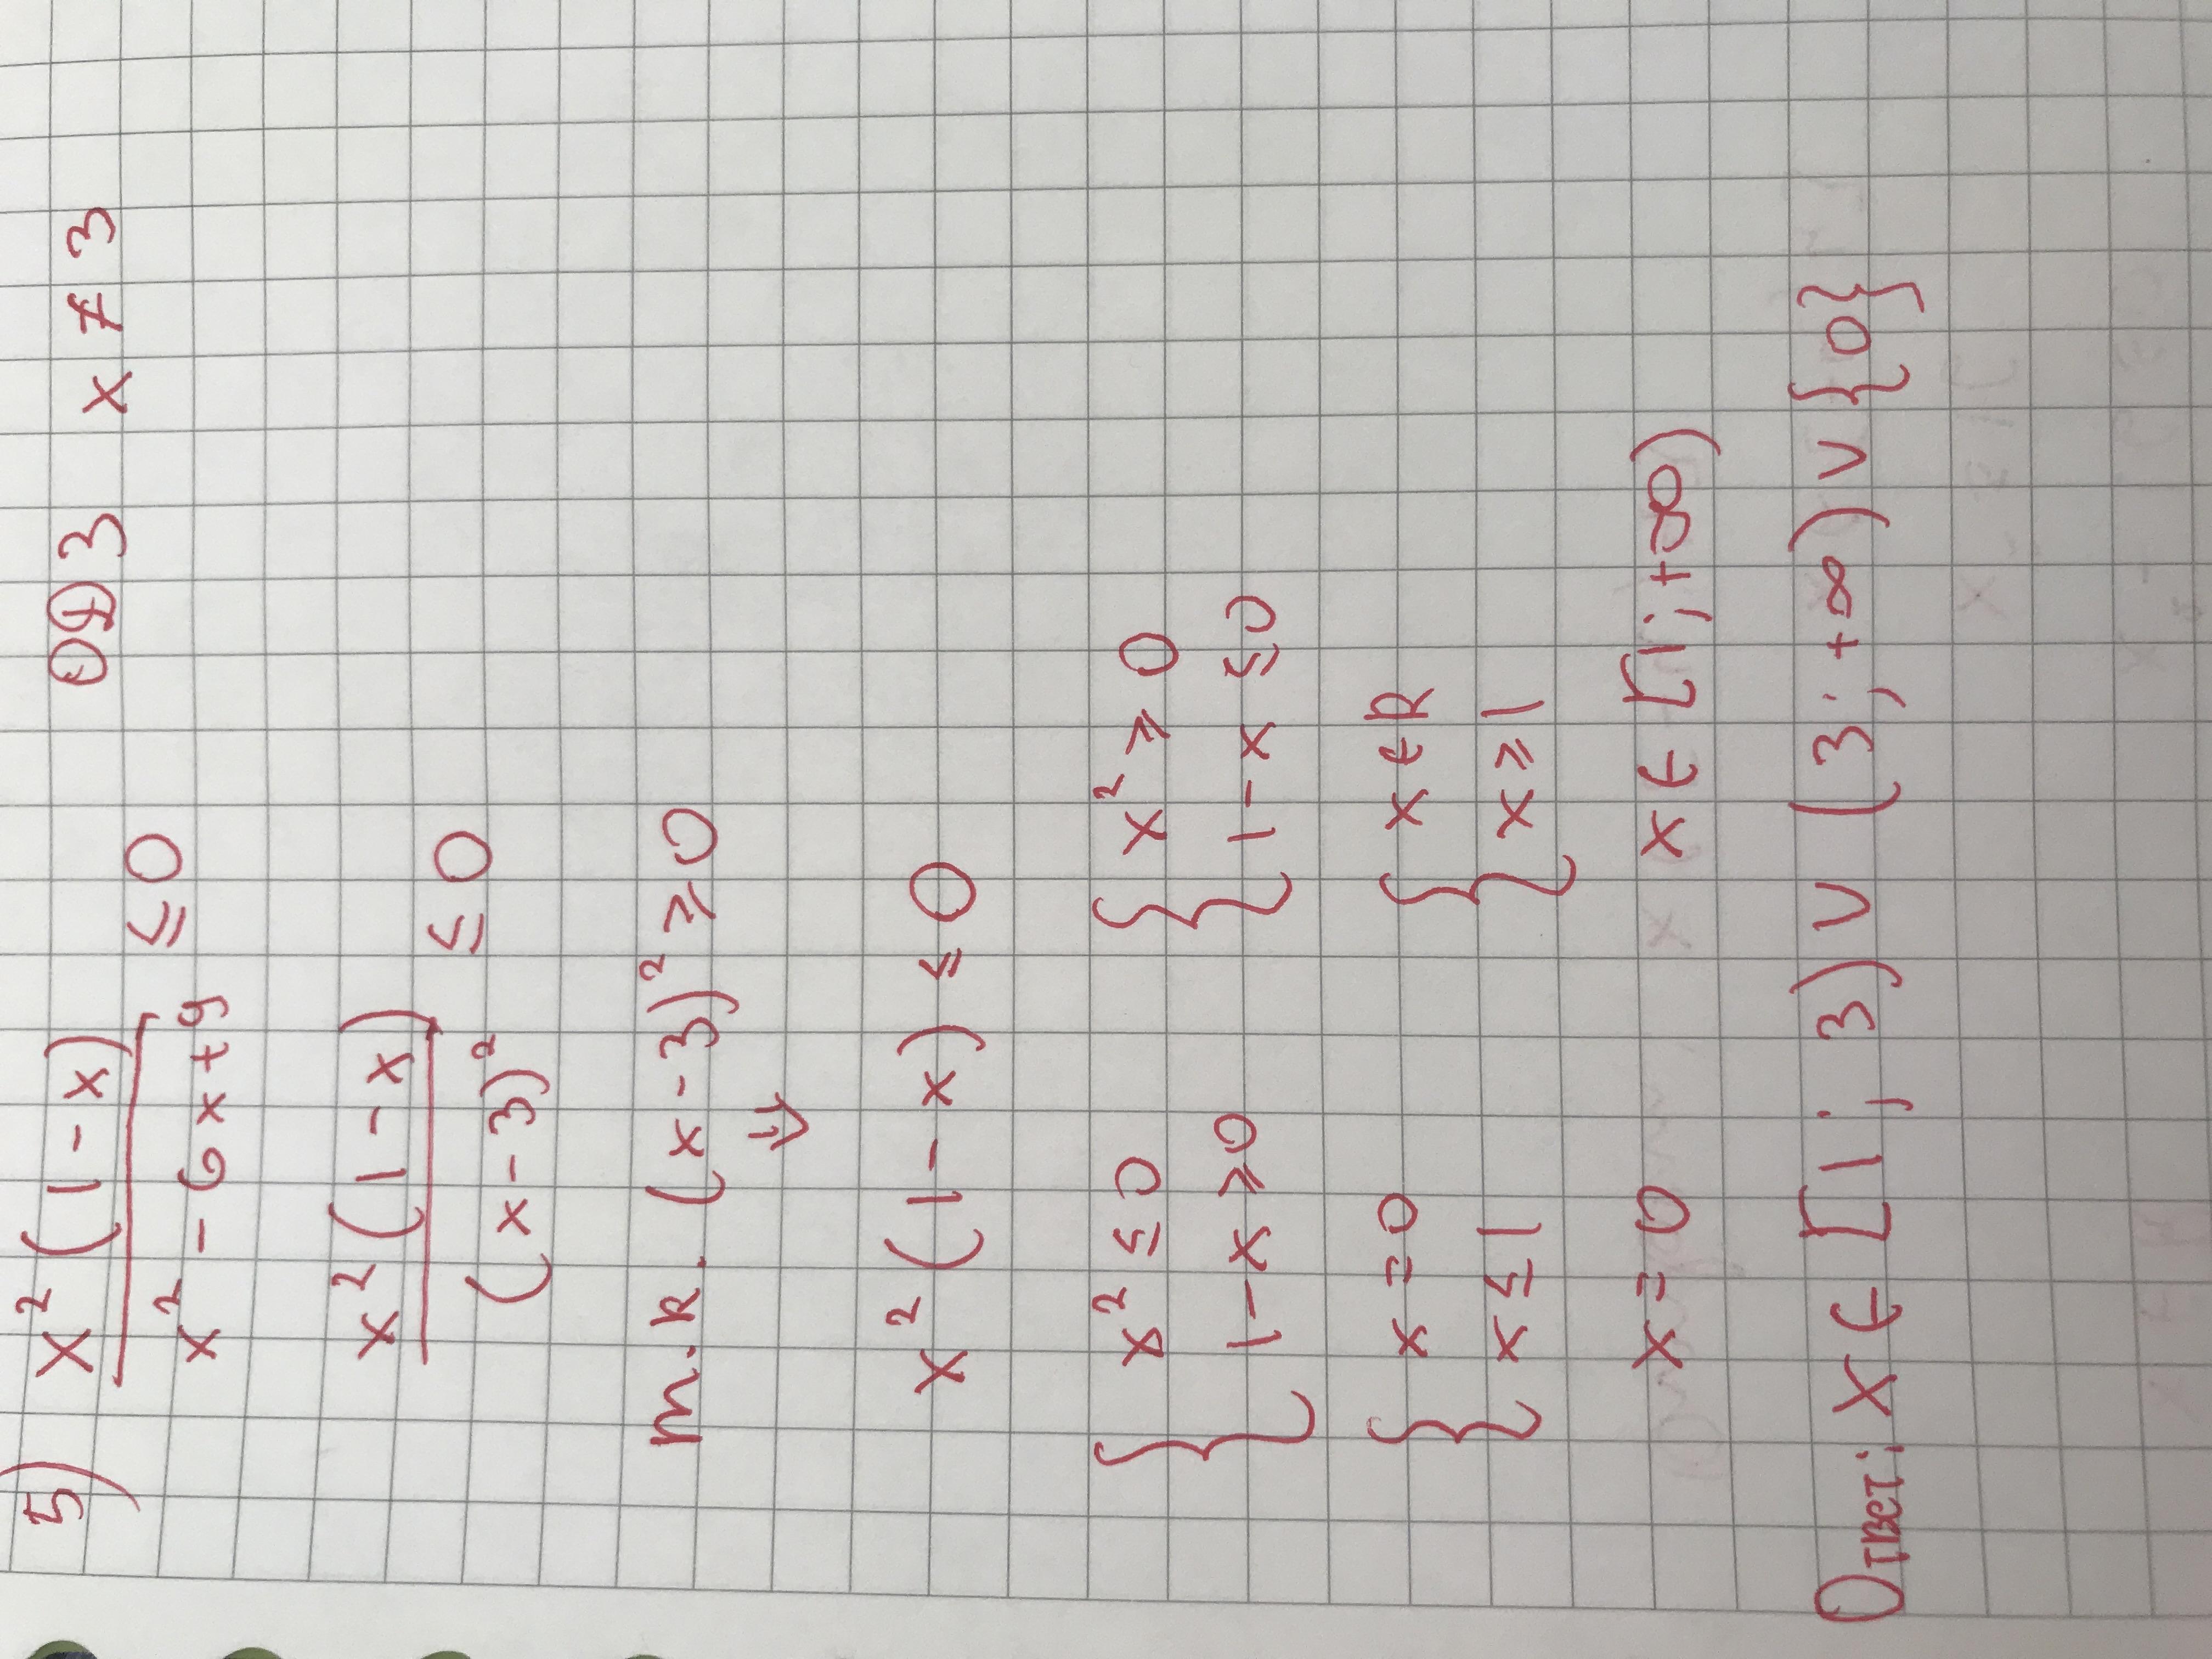 5) x² (1-x) / x² - 6x+9 ≤ 0 ОДЗ x ≠ 3
x² (1-x) / (x-3)² ≤ 0
т.к. (x-3)² ≥ 0
⇓
x² (1-x) ≤ 0
{ x² ≤ 0 { x² ≥ 0
1-x ≥ 0 1-x ≤ 0
{ x = 0 { x ∈ R
x ≤ 1 x ≥ 1
x = 0 x ∈ [1; +∞)
Ответ: x ∈ [1; 3) ∪ (3; +∞) ∪ {0}